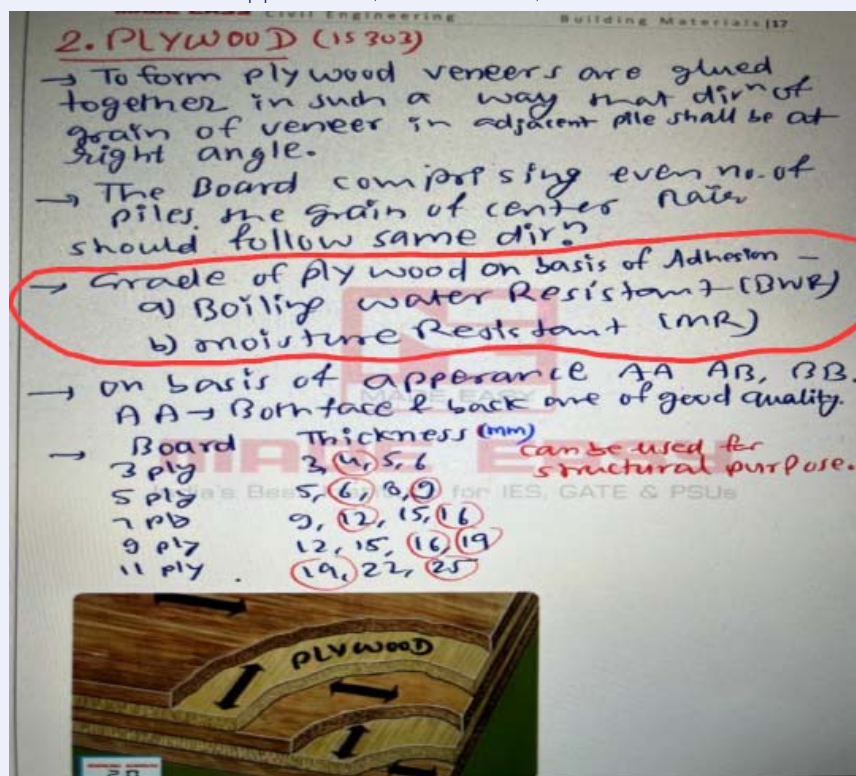 MADE EASY Civil Engineering Building Materials | 17
2. PLYWOOD (IS 303)
→ To form plywood veneers are glued
together in such a way that dirn of
grain of veneer in adjacent pile shall be at
right angle.
→ The Board comprising even no. of
piles the grain of center
should follow same dirn
→ Grade of plywood on basis of Adhesion -
a) Boiling water Resistant (BWR)
b) moisture Resistant (MR)
→ on basis of apperance AA AB, BB.
AA → Both face & back are of good quality.
→ Board Thickness (mm)
3 ply 3, 4, 5, 6 can be used for
structural purpose.
5 ply 5, 6, 8, 9
9, 12, 15, 16
9 ply 12, 15, 16, 19
11 ply 19, 22, 25
MADE EASY
MADE EASY
India's Best for IES, GATE & PSUs
PLYWOOD